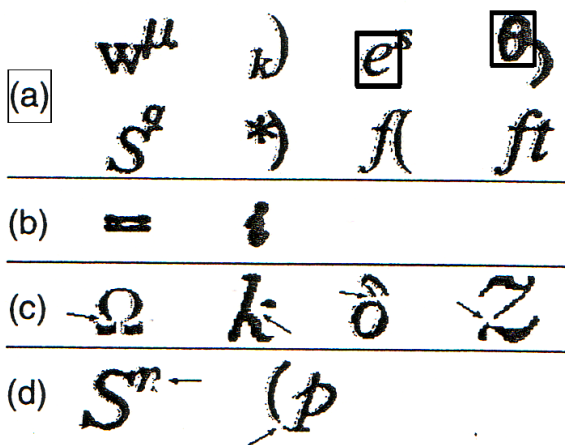 (a) w^μ k) e^s θ)
S^g *) fl( ft
(b) = i
(c) Ω k ô Z
(d) S^n (p